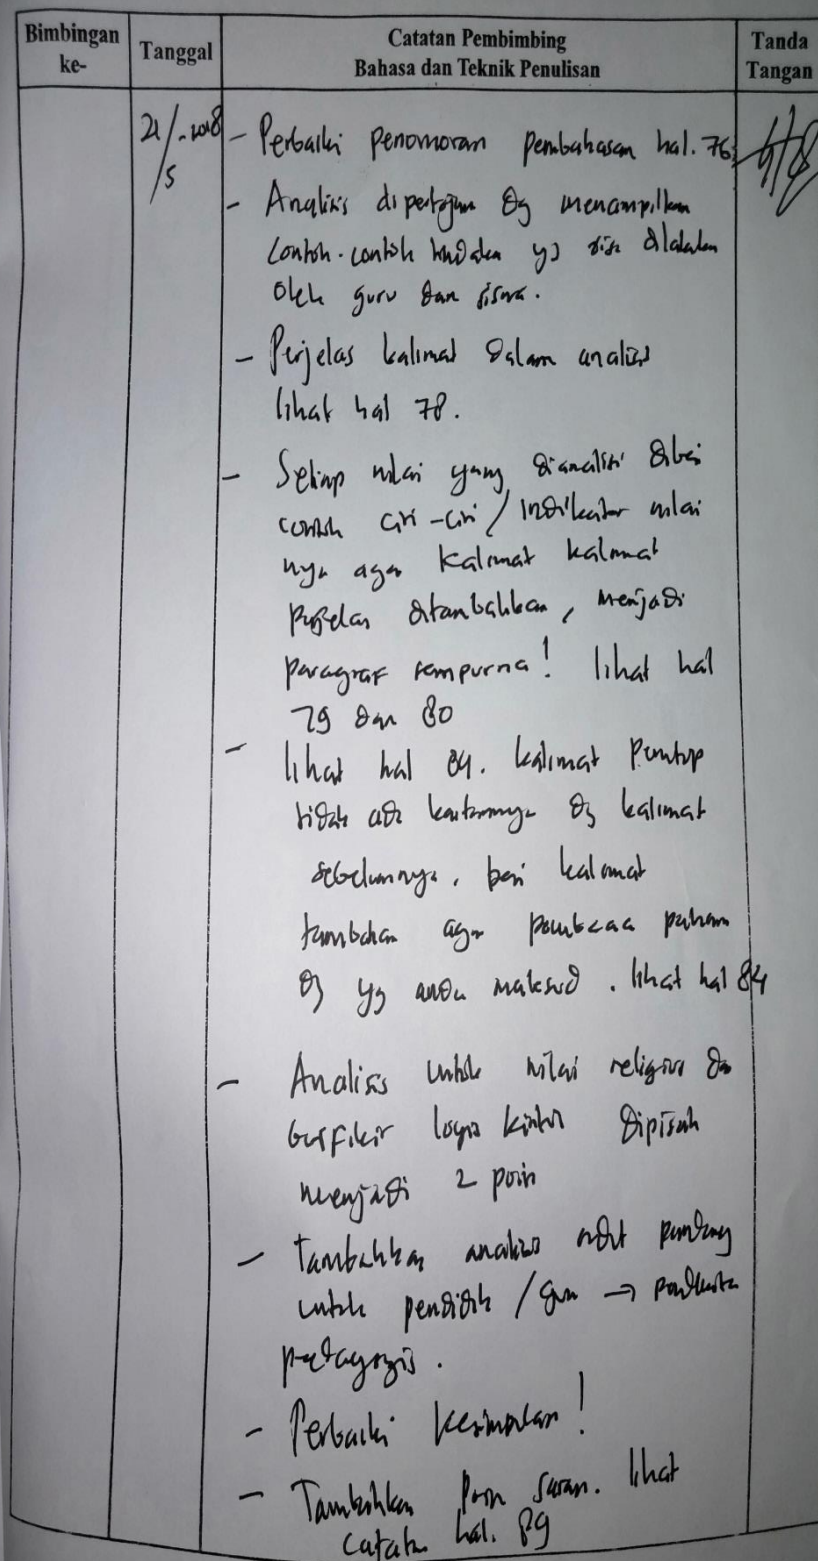 Bimbingan ke-
Tanggal
Catatan Pembimbing
Bahasa dan Teknik Penulisan
Tanda Tangan
21/5-2018
- Perbaiki penomoran pembahasan hal. 76
- Analisis dipertajam dg menampilkan
contoh-contoh yg dilakukan
oleh guru dan siswa.
- Perjelas kalimat dalam analisis
lihat hal 78.
- Setiap nilai yang dianalisis diberi
contoh ciri-ciri / indikator nilai
nya agar kalimat kalimat
penjelas ditambahkan, menjadi
paragraf sempurna! lihat hal
79 dan 80
- lihat hal 84. kalimat penutup
tidak ada kaitannya dg kalimat
sebelumnya, beri kalimat
tambahan agar pembaca paham
dg yg anda maksud. lihat hal 84
- Analisis untuk nilai religius dan
berfikir logis dipisah
menjadi 2 poin
- Tambahkan analisis sudut pandang
untuk pendidik / guru →
pedagogis.
- Perbaiki kesimpulan!
- Tambahkan poin saran. lihat
catatan hal. 89